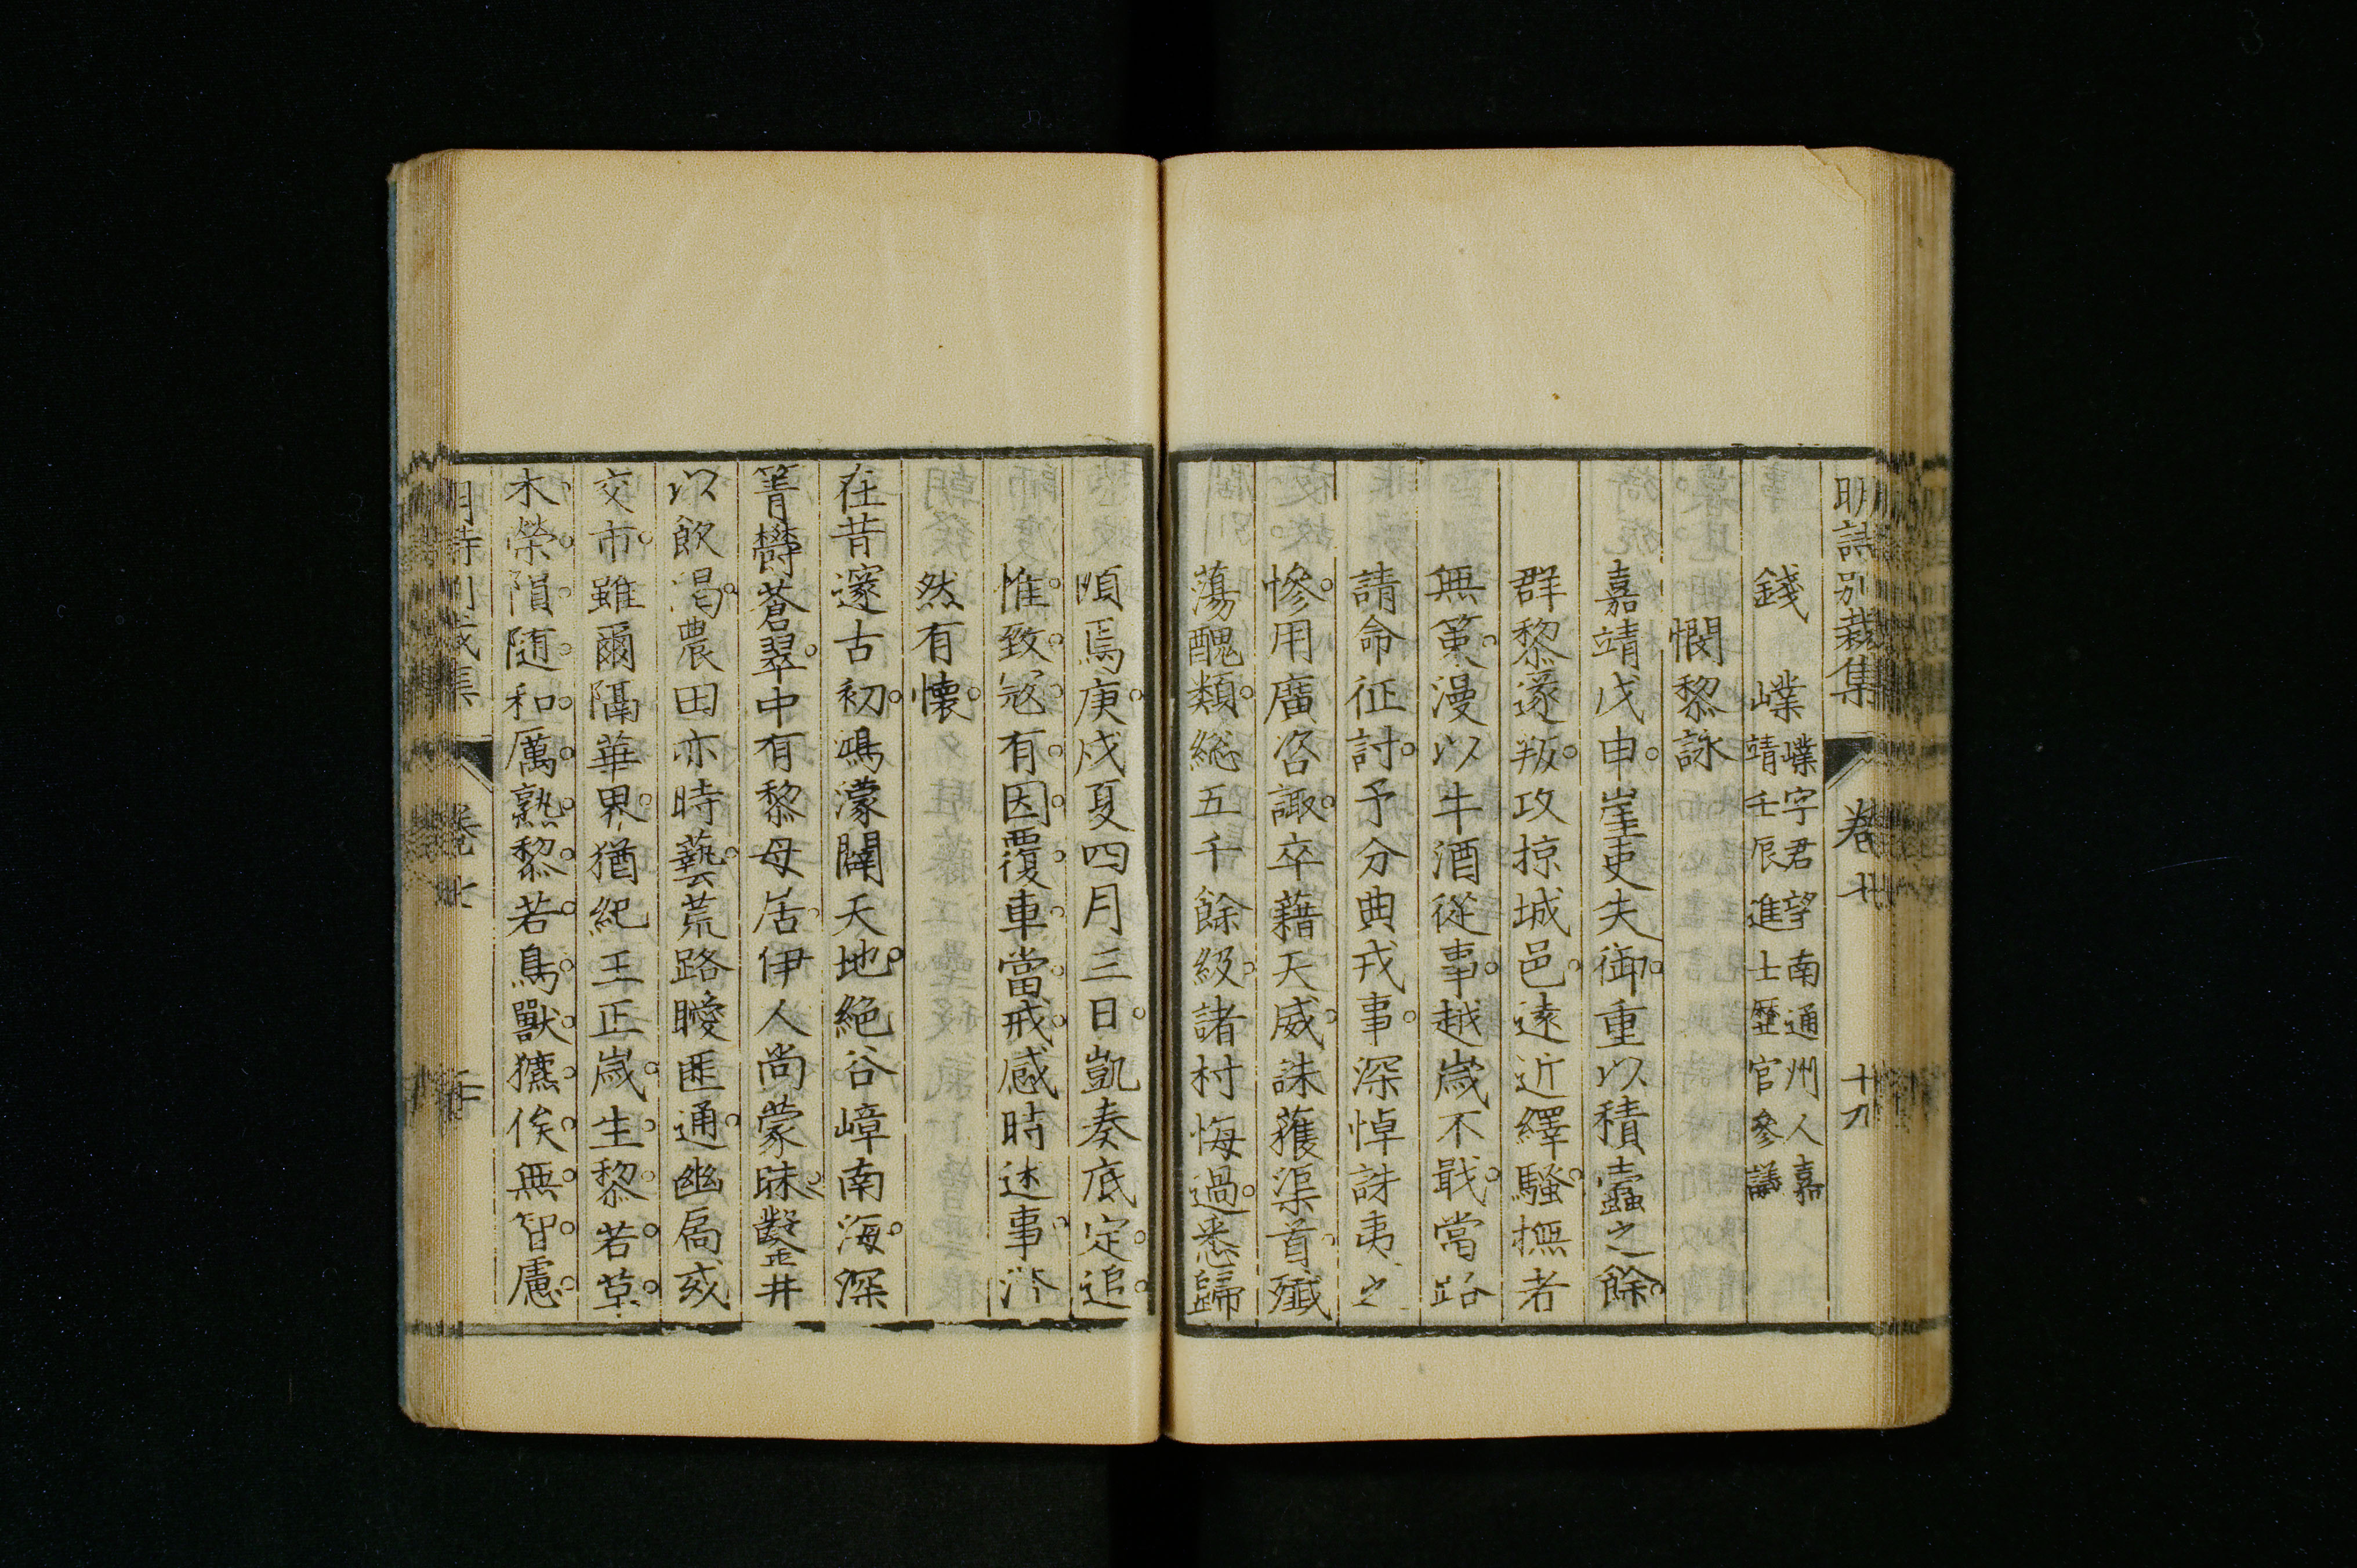 明詩別裁集 卷十 十九
錢 㠓 㠓字君望南通州人嘉
靖壬辰進士歷官參議
憫黎詠
嘉靖戊申。崖吏失御。重以積蠹之餘。
群黎遂叛。攻掠城邑。遠近繹騷。撫者
無策。漫以牛酒從事。越歲不戢。當路
請命征討。予分典戎事。深悼誅夷之
慘。用廣咨諏。卒藉天威。誅蒦渠首。殲
蕩醜類。總五千餘級。諸村悔過。悉歸
順焉。庚戌夏四月三日。凱奏底定。追
惟致冦有因。覆車當戒。感時述事。泫
然有懷。
在昔邃古初。鴻濛闢天地。絕谷嶂南海。深
箐鬱蒼翠。中有黎母居。伊人尚蒙昧。鑿井
以飲渴。農田亦時藝。荒路曖匪通。幽扃或
交市。雖爾隔華界。猶紀王正歲。生黎若草
木。榮隕隨和厲。熟黎若鳥獸。獉俟無智慮。
明詩別裁集 卷十 二十